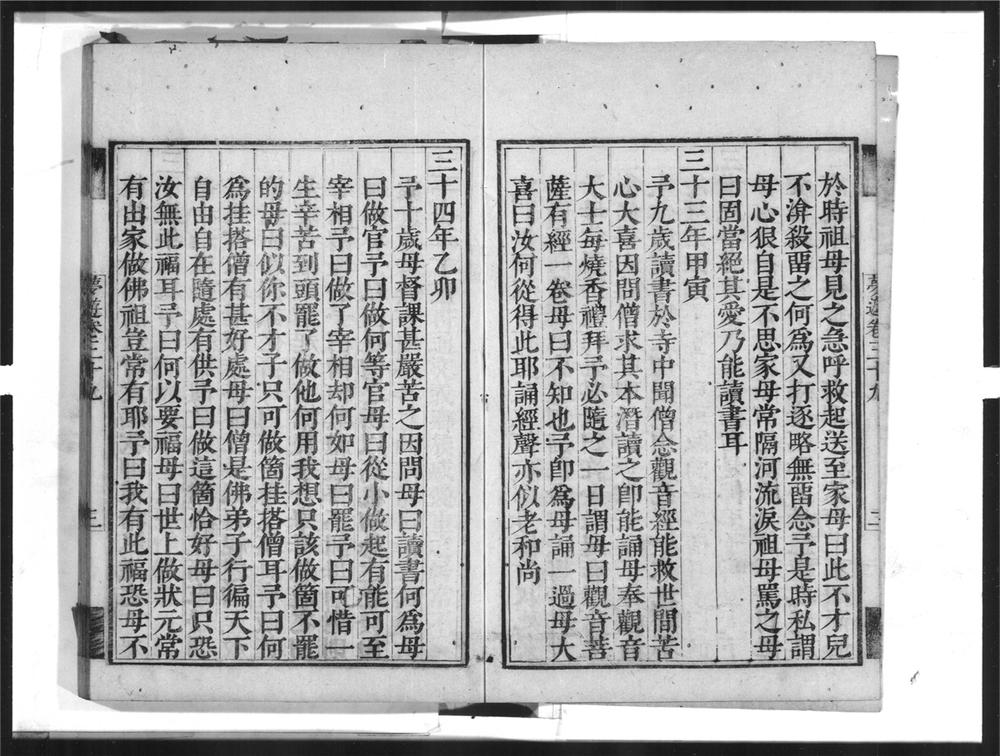 於時祖母見之急呼救起送至家母曰此不才兒
不渰殺畱之何爲又打逐略無畱念予是時私謂
母心狠自是不思家母常隔河流淚祖母罵之母
曰固當絕其愛乃能讀書耳
三十三年甲寅
予九歲讀書於寺中聞僧念觀音經能救世間苦
心大喜因問僧求其本潛讀之卽能誦母奉觀音
大士每燒香禮拜予必隨之一日謂母曰觀音菩
薩有經一卷母曰不知也予卽爲母誦一過母大
喜曰汝何從得此耶誦經聲亦似老和尚
夢遊卷三十九
三
三十四年乙卯
予十歲母督課甚嚴苦之因問母曰讀書何爲母
曰做官予曰做何等官母曰從小做起有能可至
宰相予曰做了宰相却何如母曰罷予曰可惜一
生辛苦到頭罷了做他何用我想只該做箇不罷
的母曰似你不才子只可做箇挂搭僧耳予曰何
爲挂搭僧有甚好處母曰僧是佛弟子行徧天下
自由自在隨處有供予曰做這箇恰好母曰只恐
汝無此福耳予曰何以要福母曰世上做狀元常
有出家做佛祖豈常有耶予曰我有此福恐母不
夢遊卷三十九
三